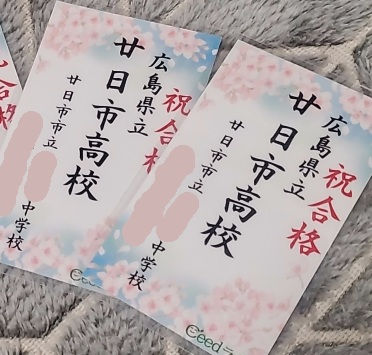 合格
祝合格
広島県立
廿日市高校
廿日市市立
中学校
祝合格
広島県立
廿日市高校
廿日市市立
中学校
Seed